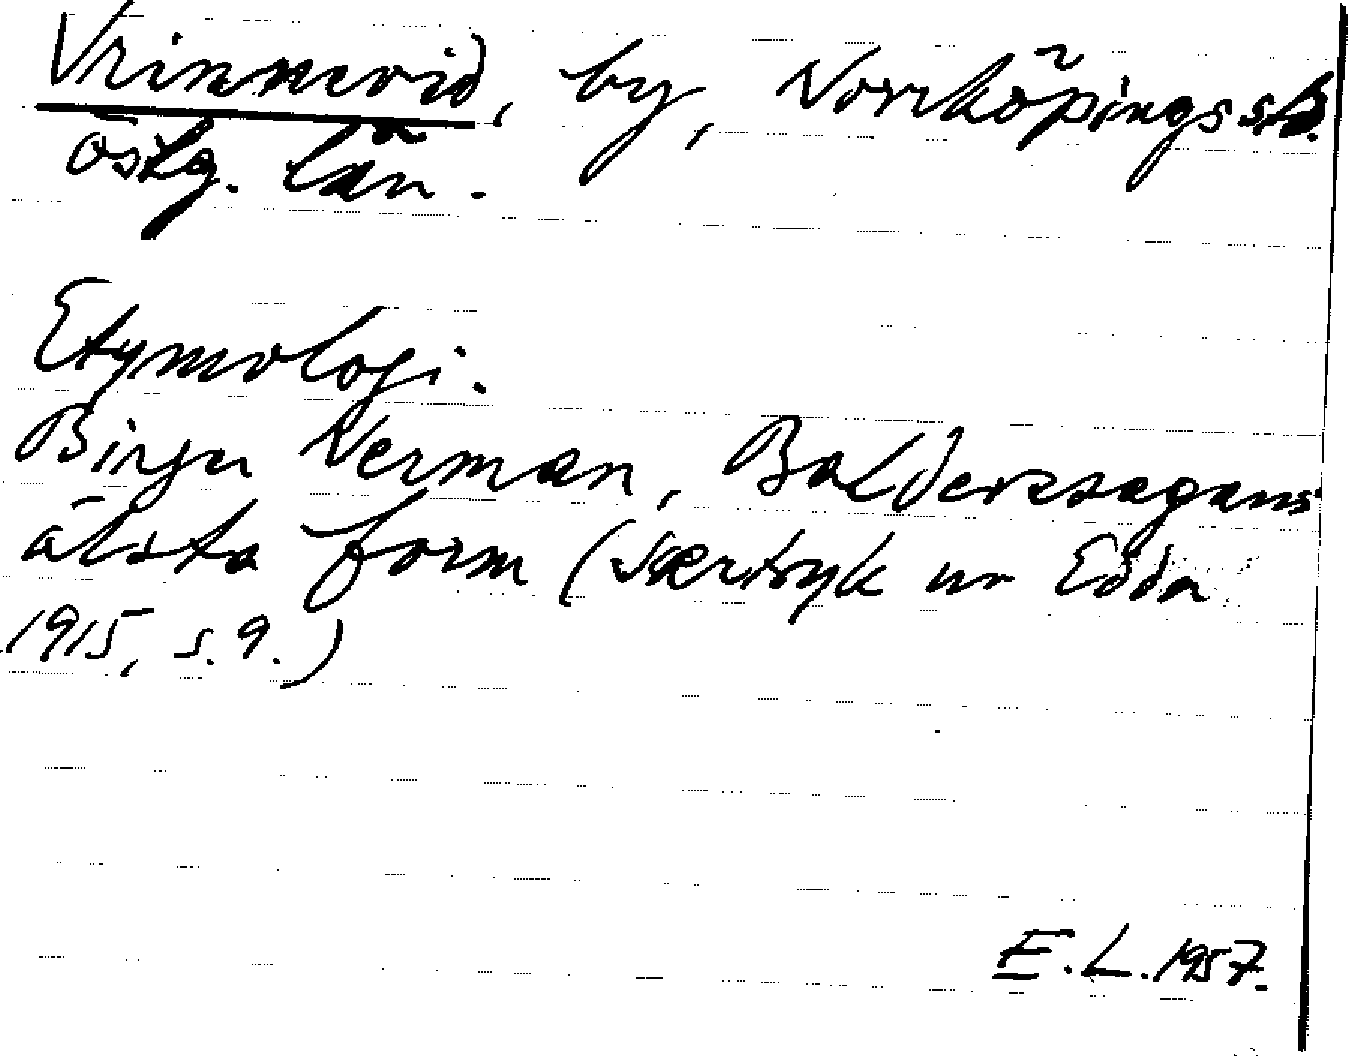 Vrinnevid, by, Norrköpings
Östg. län.
Etymologi.
Birger Nerman, Balderssagans
älsta form (Særtryk ur Edda
1915, s. 9.)
E. L. 1957.